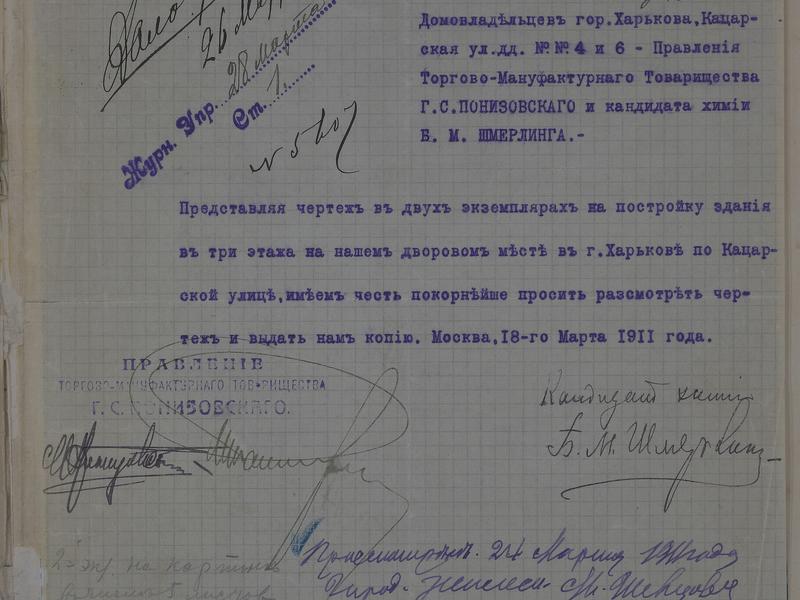 Дало
26 Мар
28 марта
Журн. Упр.
Ст. 1.
N 5607
Домовладѣльцевъ гор.Харькова,Кацар-
ская ул.дд. №№ 4 и 6 - Правленія
Торгово-Мануфактурнаго Товарищества
Г.С.ПОНИЗОВСКАГО и кандидата химіи
Б. М. ШМЕРЛИНГА.-
Представляя чертежъ въ двухъ экземплярахъ на постройку зданія
въ три этажа на нашемъ дворовомъ мѣстѣ въ г.Харьковѣ по Кацар-
ской улицѣ,имѣемъ честь покорнѣйше просить разсмотрѣть чер-
тежъ и выдать намъ копію. Москва,18-го Марта 1911 года.
ПРАВЛЕНІЕ
ТОРГОВО-МАНУФАКТУРНАГО ТОВАРИЩЕСТВА
Г. С. ПОНИЗОВСКАГО.
Кандидатъ химіи
Б. М. Шмерлинг
24 Марта 1911 года